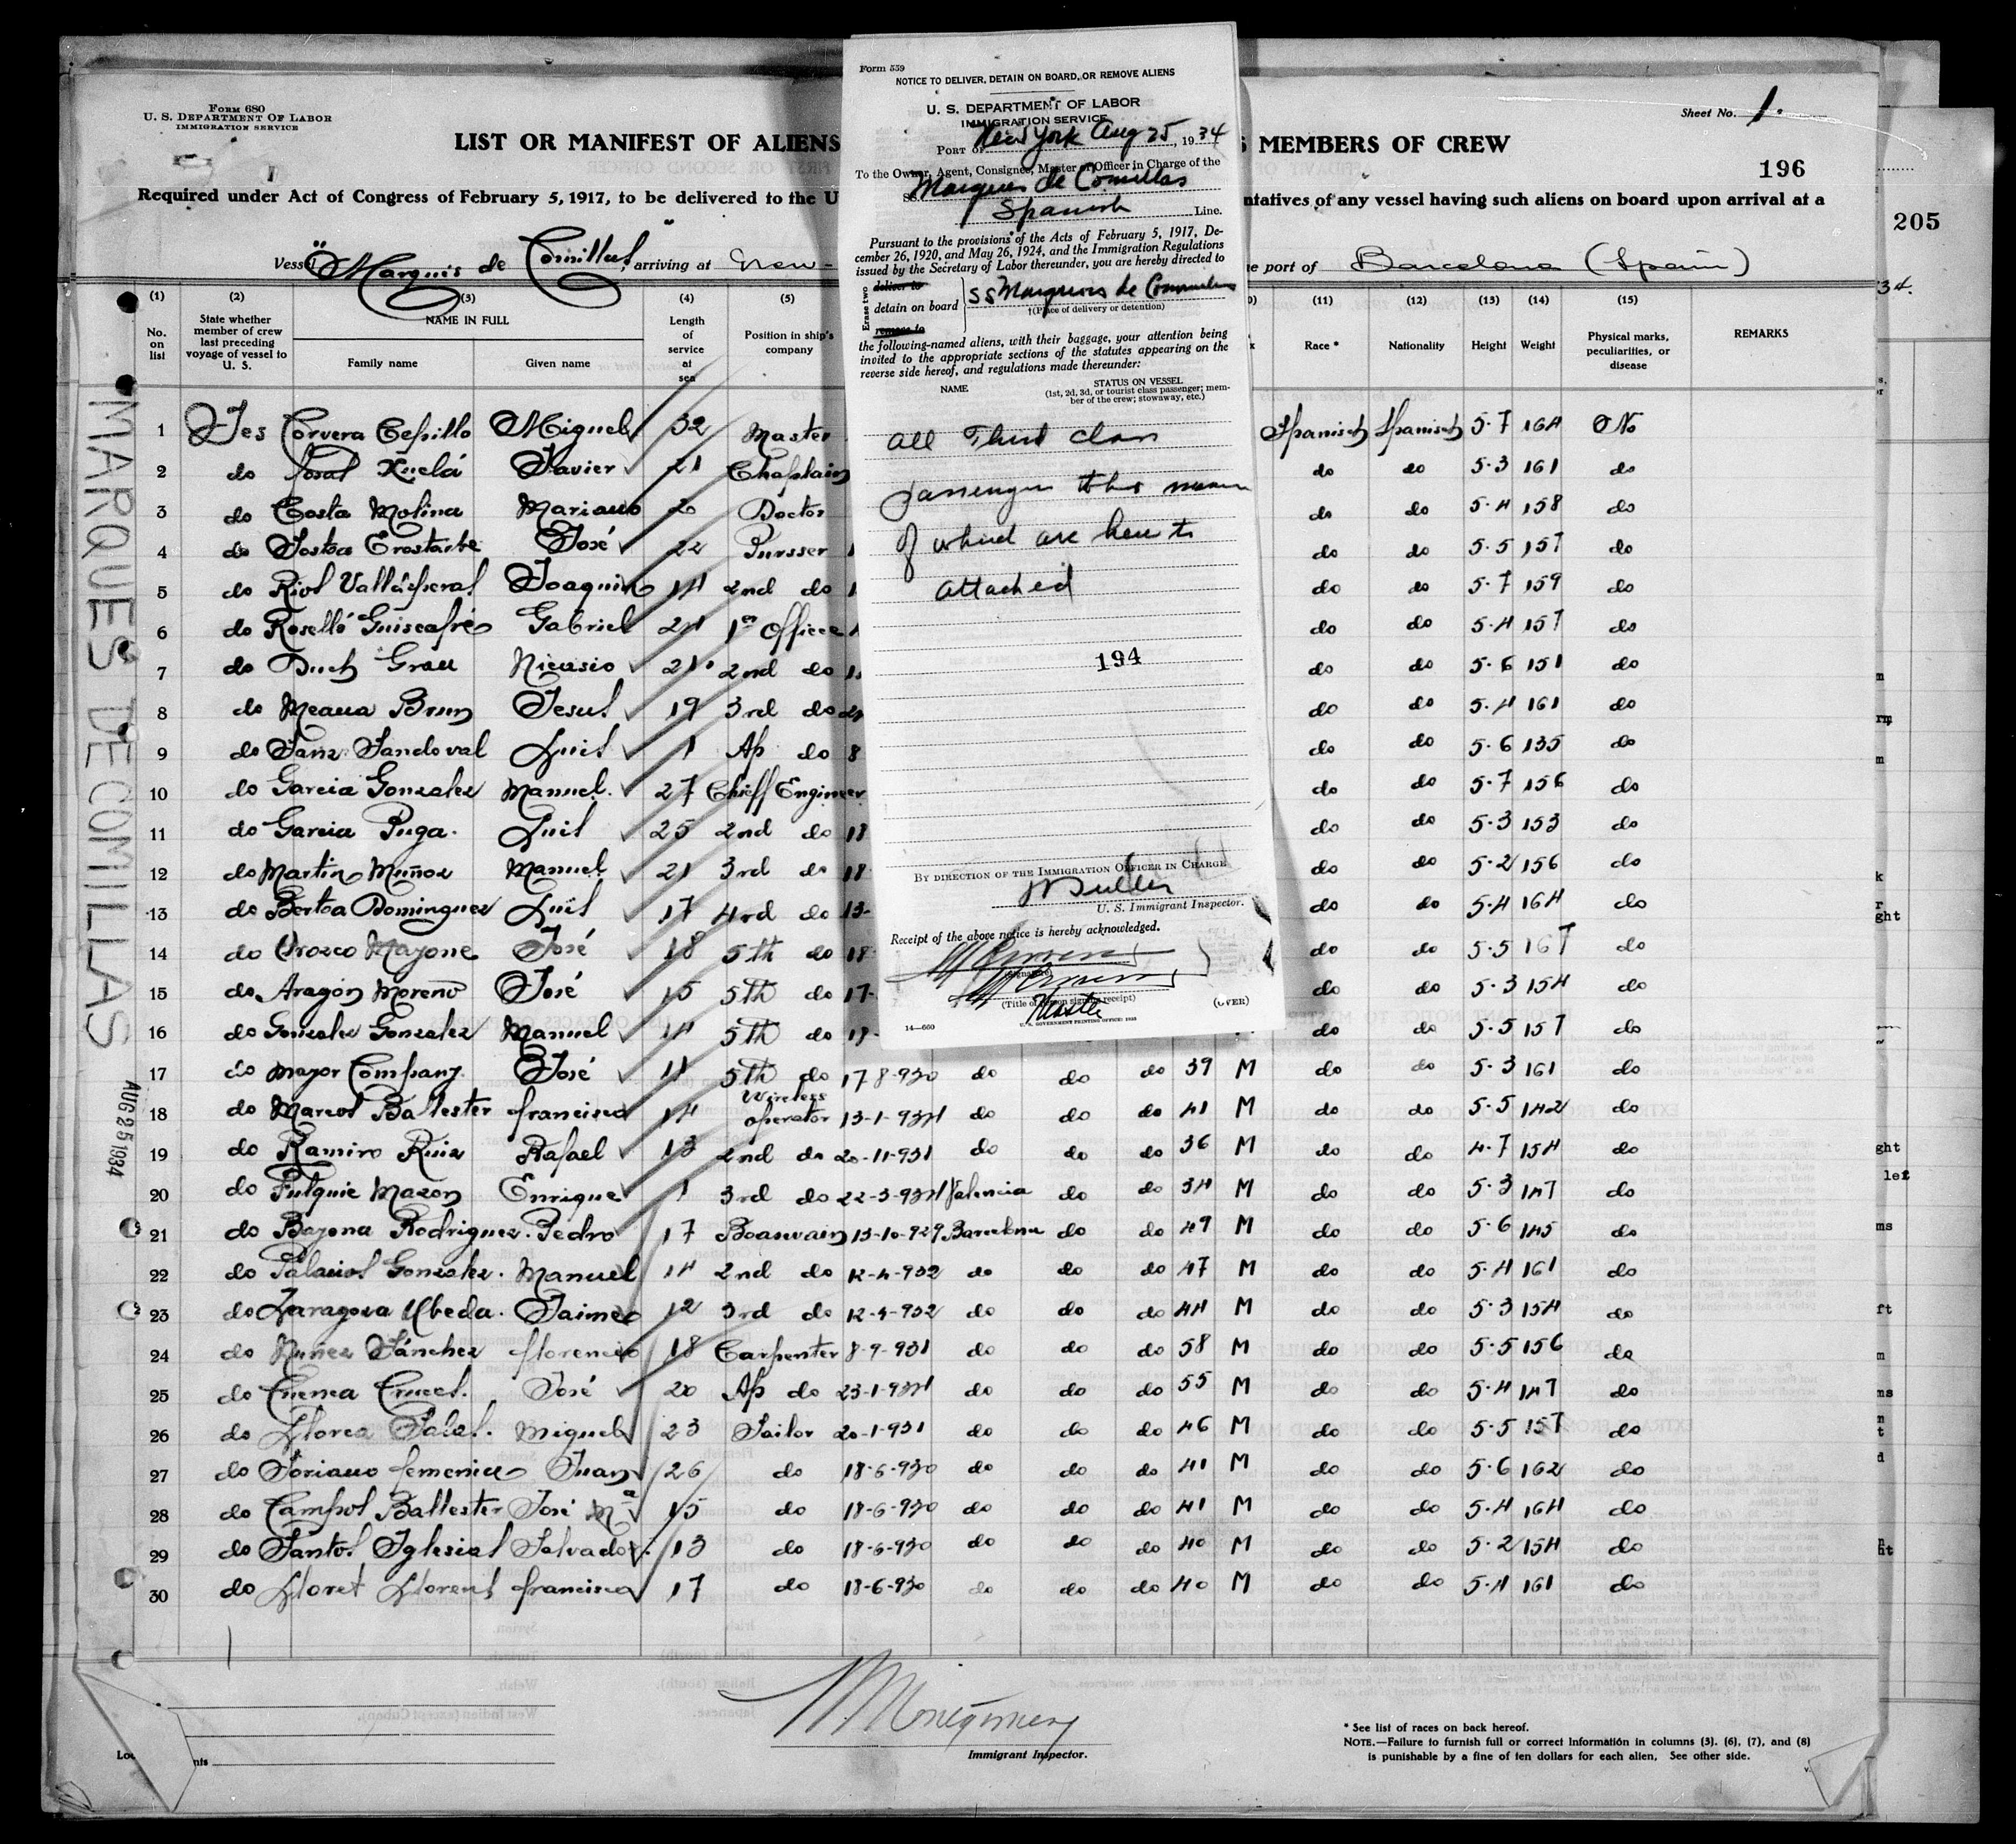 Form 680
U. S. Department Of Labor
IMMIGRATION SERVICE
Sheet No. 1.
LIST OR MANIFEST OF ALIENS
S MEMBERS OF CREW
196
205
Required under Act of Congress of February 5, 1917, to be delivered to the U
ntatives of any vessel having such aliens on board upon arrival at a
Vessel "Marquis de Comillas", arriving at New-
e port of Barcelona (Spain)
34.
(1) (2) (3) (4) (5) (11) (12) (13) (14) (15)
No. on list
State whether member of crew last preceding voyage of vessel to U. S.
NAME IN FULL
Family name
Given name
Length of service at sea
Position in ship's company
Race *
Nationality
Height
Weight
Physical marks, peculiarities, or disease
REMARKS
1 Yes Corvera Cepillo Miguel 32 Master Spanisch Spanisch 5·7 164 No
2 do Xuclá Javier 21 Chaplain do do 5·3 161 do
3 do Costa Molina Mariano 2 Doctor do do 5·4 158 do
4 do José 22 Pursser do do 5·5 157 do
5 do Riol Joaquin 14 2nd do do do 5·7 159 do
6 do Roselló Guiscafré Gabriel 24 1er Officer do do 5·4 157 do
7 do Duch Grau Nicasio 21 2nd do do do 5·6 151 do
8 do Meana Brun Jesus 19 3rd do do do 5·4 161 do
9 do Sanz Sandoval Luis 1 Ap do 8 do do 5·6 135 do
10 do Garcia Gonzalez Manuel. 27 Chieff Engineer do do 5·7 156 do
11 do Garcia Puga. Luis 25 2nd do 18 do do 5·3 153 do
12 do Martin Muñoz Manuel 21 3rd do 18 do do 5·2 156 do
13 do Bertoa Dominguez Luis 17 4rd do 13- do do 5·4 164 do
14 do Orozco Mayone José 18 5th do 18 do do 5·5 167 do
15 do Aragón Moreno José 15 5th do 17- do do 5·3 154 do
16 do Gonzalez Gonzalez Manuel 14 5th do do do 5·5 157 do
17 do Mayor Company. José 11 5th do 17 8-930 do do do 39 M do do 5·3 161 do
18 do Marcos Ballester francisco 14 Wireless operator 13-1-934 do do do 41 M do do 5·5 142 do
19 do Ramiro Ruiz Rafael 13 2nd do 20-11-931 do do do 36 M do do 4·7 154 do
20 do Mazon Enrique 1 3rd do 22-3-934 Valencia do do 34 M do do 5·3 147 do
21 do Bayona Rodriguez. Pedro 17 Boaswain 13-10-929 Barcelona do do 49 M do do 5·6 145 do
22 do Palacios Gonzalez. Manuel 14 2nd do 12-4-932 do do do 47 M do do 5·4 161 do
23 do Zaragoza Ubeda. Jaime 12 3rd do 12-4-932 do do do 44 M do do 5·3 154 do
24 do Nuñez Sánchez florencio 18 Carpenter 8-9-931 do do do 58 M do do 5·5 156 do
25 do Cuenca Cruces. José 20 Ap do 23-1-934 do do do 55 M do do 5·4 147 do
26 do Llorca Miguel 23 Sailor 20-1-931 do do do 46 M do do 5·5 157 do
27 do Soriano femenia Juan 26 do 18-6-930 do do do 41 M do do 5·6 162 do
28 do Campos Ballester José Mª 15 do 18-6-930 do do do 41 M do do 5·4 164 do
29 do Santos Iglesias Salvador. 13 do 18-6-930 do do do 40 M do do 5·2 154 do
30 do Lloret Llorens francisco 17 do 18-6-930 do do do 40 M do do 5·4 161 do
MARQUES DE COMILLAS
AUG 25 1934
Form 559
NOTICE TO DELIVER, DETAIN ON BOARD, OR REMOVE ALIENS
U. S. DEPARTMENT OF LABOR
IMMIGRATION SERVICE
Port of New York Aug 25, 1934
To the Owner, Agent, Consignee, Master or Officer in Charge of the
SS Marques de Comillas
Spanish Line.
Pursuant to the provisions of the Acts of February 5, 1917, De-
cember 26, 1920, and May 26, 1924, and the Immigration Regulations
issued by the Secretary of Labor thereunder, you are hereby directed to
Erase two
deliver to
detain on board
remove to
SS Marques de Comillas
†(Place of delivery or detention)
the following-named aliens, with their baggage, your attention being
invited to the appropriate sections of the statutes appearing on the
reverse side hereof, and regulations made thereunder:
NAME
STATUS ON VESSEL
(1st, 2d, 3d, or tourist class passenger; mem-
ber of the crew; stowaway, etc.)
All Third class
passengers the names
of which are hereto
attached
194
By direction of the Immigration Officer in Charge
U. S. Immigrant Inspector.
Receipt of the above notice is hereby acknowledged.
(Signature)
Master
(Title of person signing receipt)
(OVER)
14—660
U. S. GOVERNMENT PRINTING OFFICE: 1933
Montgomery
Immigrant Inspector.
* See list of races on back hereof.
Note.—Failure to furnish full or correct information in columns (3), (6), (7), and (8)
is punishable by a fine of ten dollars for each alien. See other side.